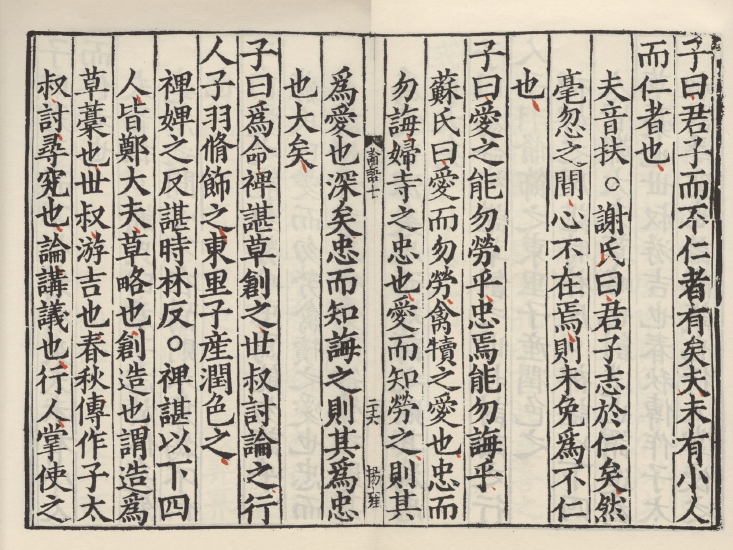 子曰君子而不仁者有矣夫未有小人
而仁者也
夫音扶○謝氏曰君子志於仁矣然
毫忽之間心不在焉則未免爲不仁
也
子曰愛之能勿勞乎忠焉能勿誨乎
蘇氏曰愛而勿勞禽犢之愛也忠而
勿誨婦寺之忠也愛而知勞之則其
論語七
二十六
爲愛也深矣忠而知誨之則其爲忠
也大矣
子曰爲命裨諶草創之世叔討論之行
人子羽脩飾之東里子產潤色之
裨婢之反諶時林反○裨諶以下四
人皆鄭大夫草略也創造也謂造爲
草藳也世叔游吉也春秋傳作子太
叔討尋究也論講議也行人掌使之